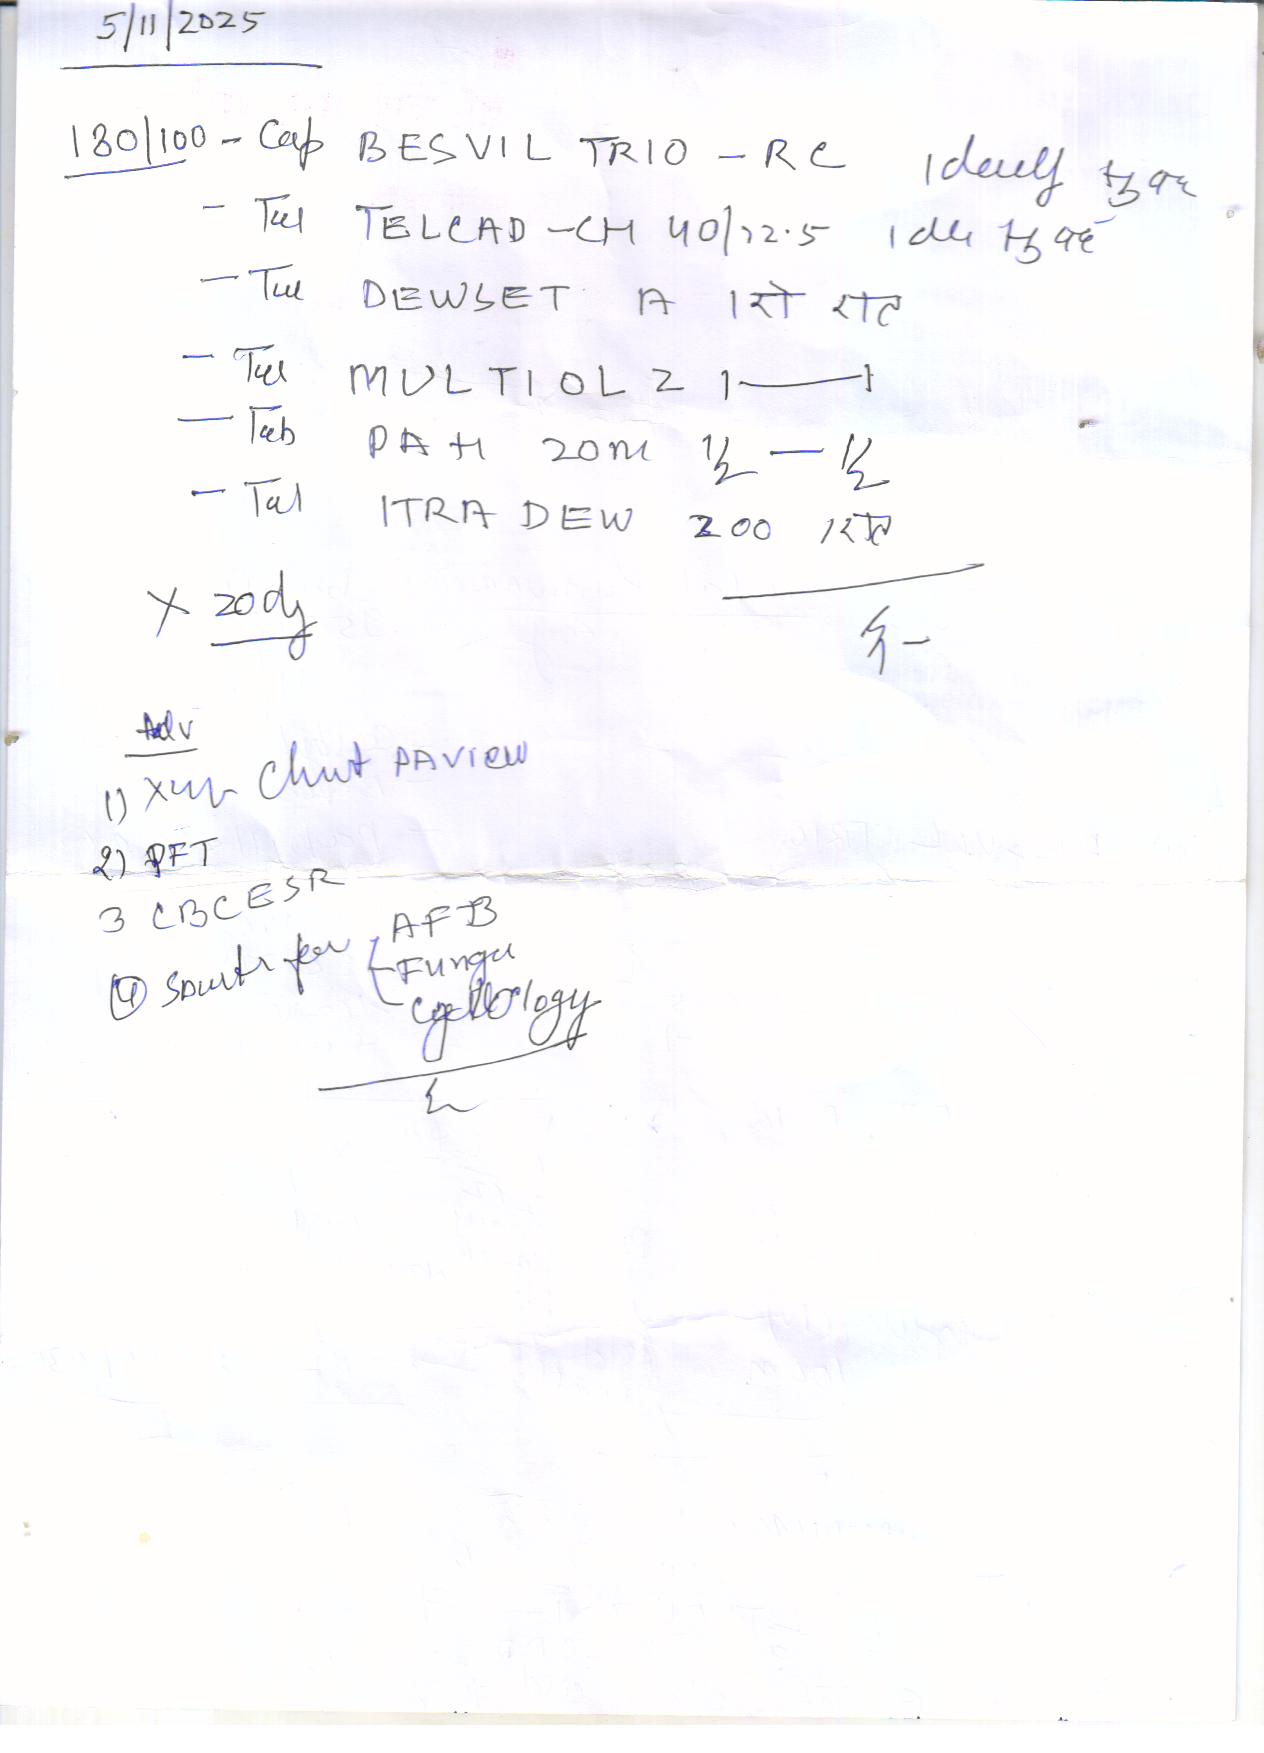 5/11/2025
180/100 - Cap BESVIL TRIO - RC 1 daily सुबह
- Tab TELCAD - CH 40/12.5 1 daily सुबह
- Tab DEWSET A 1 रात
- Tab MULTIOL Z 1 — 1
- Tab PAH 20m 1/2 — 1/2
- Tab ITRA DEW 200 1 रात
X 20dy
Adv
1) Xray Chest PA VIEW
2) PFT
3 CBC ESR
4 Sputm for AFB
Fungu
Cytology